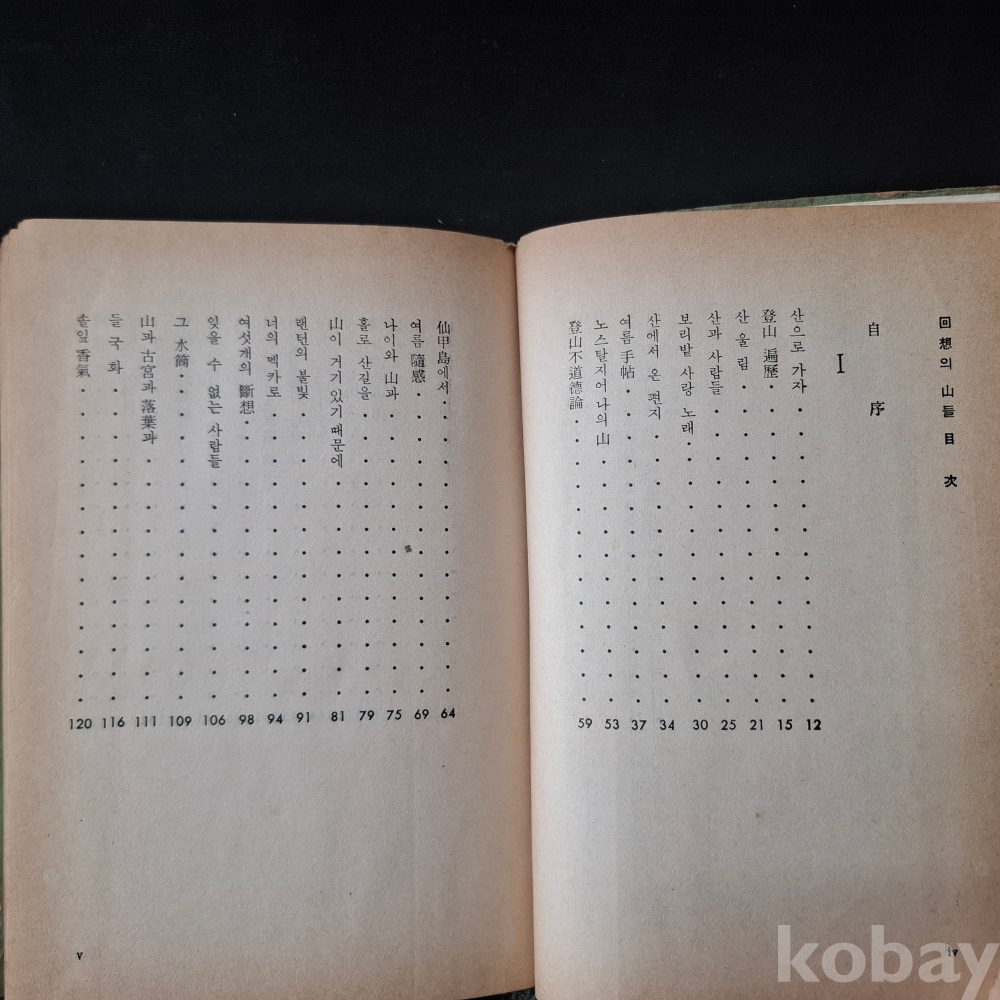 回想의 山들 目次
自序
I
산으로 가자 12
登山 遍歷 15
산 울림 21
산과 사람들 25
보리밭 사랑 노래 30
산에서 온 편지 34
여름 手帖 37
노스탈지어 나의 山 53
登山不道德論 59
iv
仙甲島에서 64
여름 隨感 69
나이와 山과 75
홀로 산길을 79
山이 거기 있기 때문에 81
랜턴의 불빛 91
너의 멕카로 94
여섯개의 斷想 98
잊을 수 없는 사람들 106
그 水筒 109
山과 古宮과 落葉과 111
들국화 116
솔잎 香氣 120
v
kobay